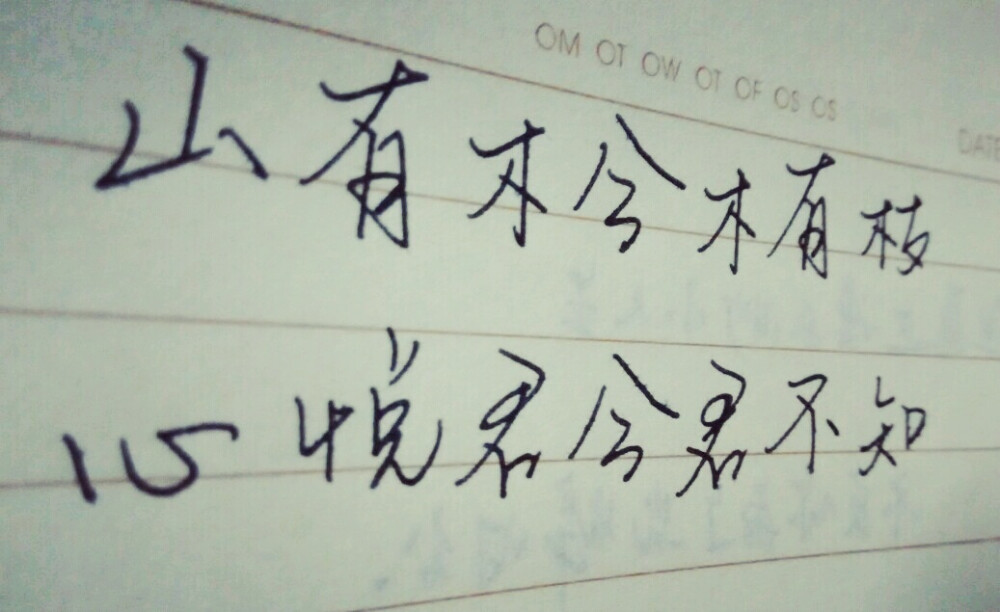 OM OT OW OT OF OS OS
DATE
山有木兮木有枝
心悦君兮君不知